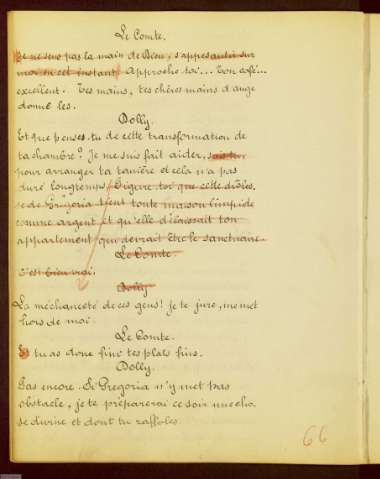 Le Comte.
Je ne sens pas la main de Dieu, s'appesantir sur
moi en cet instant Approche toi... Ton café...
excellent. Tes mains, tes chères mains d'ange
donne les.
Dolly.
Et que penses-tu de cette transformation de
ta chambre? Je me suis fait aider,
pour arranger ta tanière et cela n'a pas
duré longtemps. Figure toi que cette drôles-
se de Gregoria tient toute maison limpide
comme argent et qu'elle délaissait ton
appartement qui devrait être le sanctuaire.
Le Comte.
C'est bien vrai.
Dolly
La méchanceté de ces gens! Je te jure, me met
hors de moi.
Le Comte.
Et tu as donc fini tes plats fins.
Dolly.
Pas encore. Si Gregoria n'y met pas
obstacle, je te préparerai ce soir une cho-
se divine et dont tu raffoles.
66